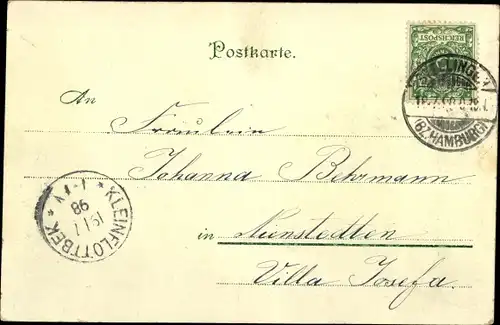 Postkarte.
REICHSPOST
(BZ.HAMBURG)
An
Fräulein
Johanna Behrmann
in Nienstedten
Villa Josefa.
KLEINFLOTTBEK
98